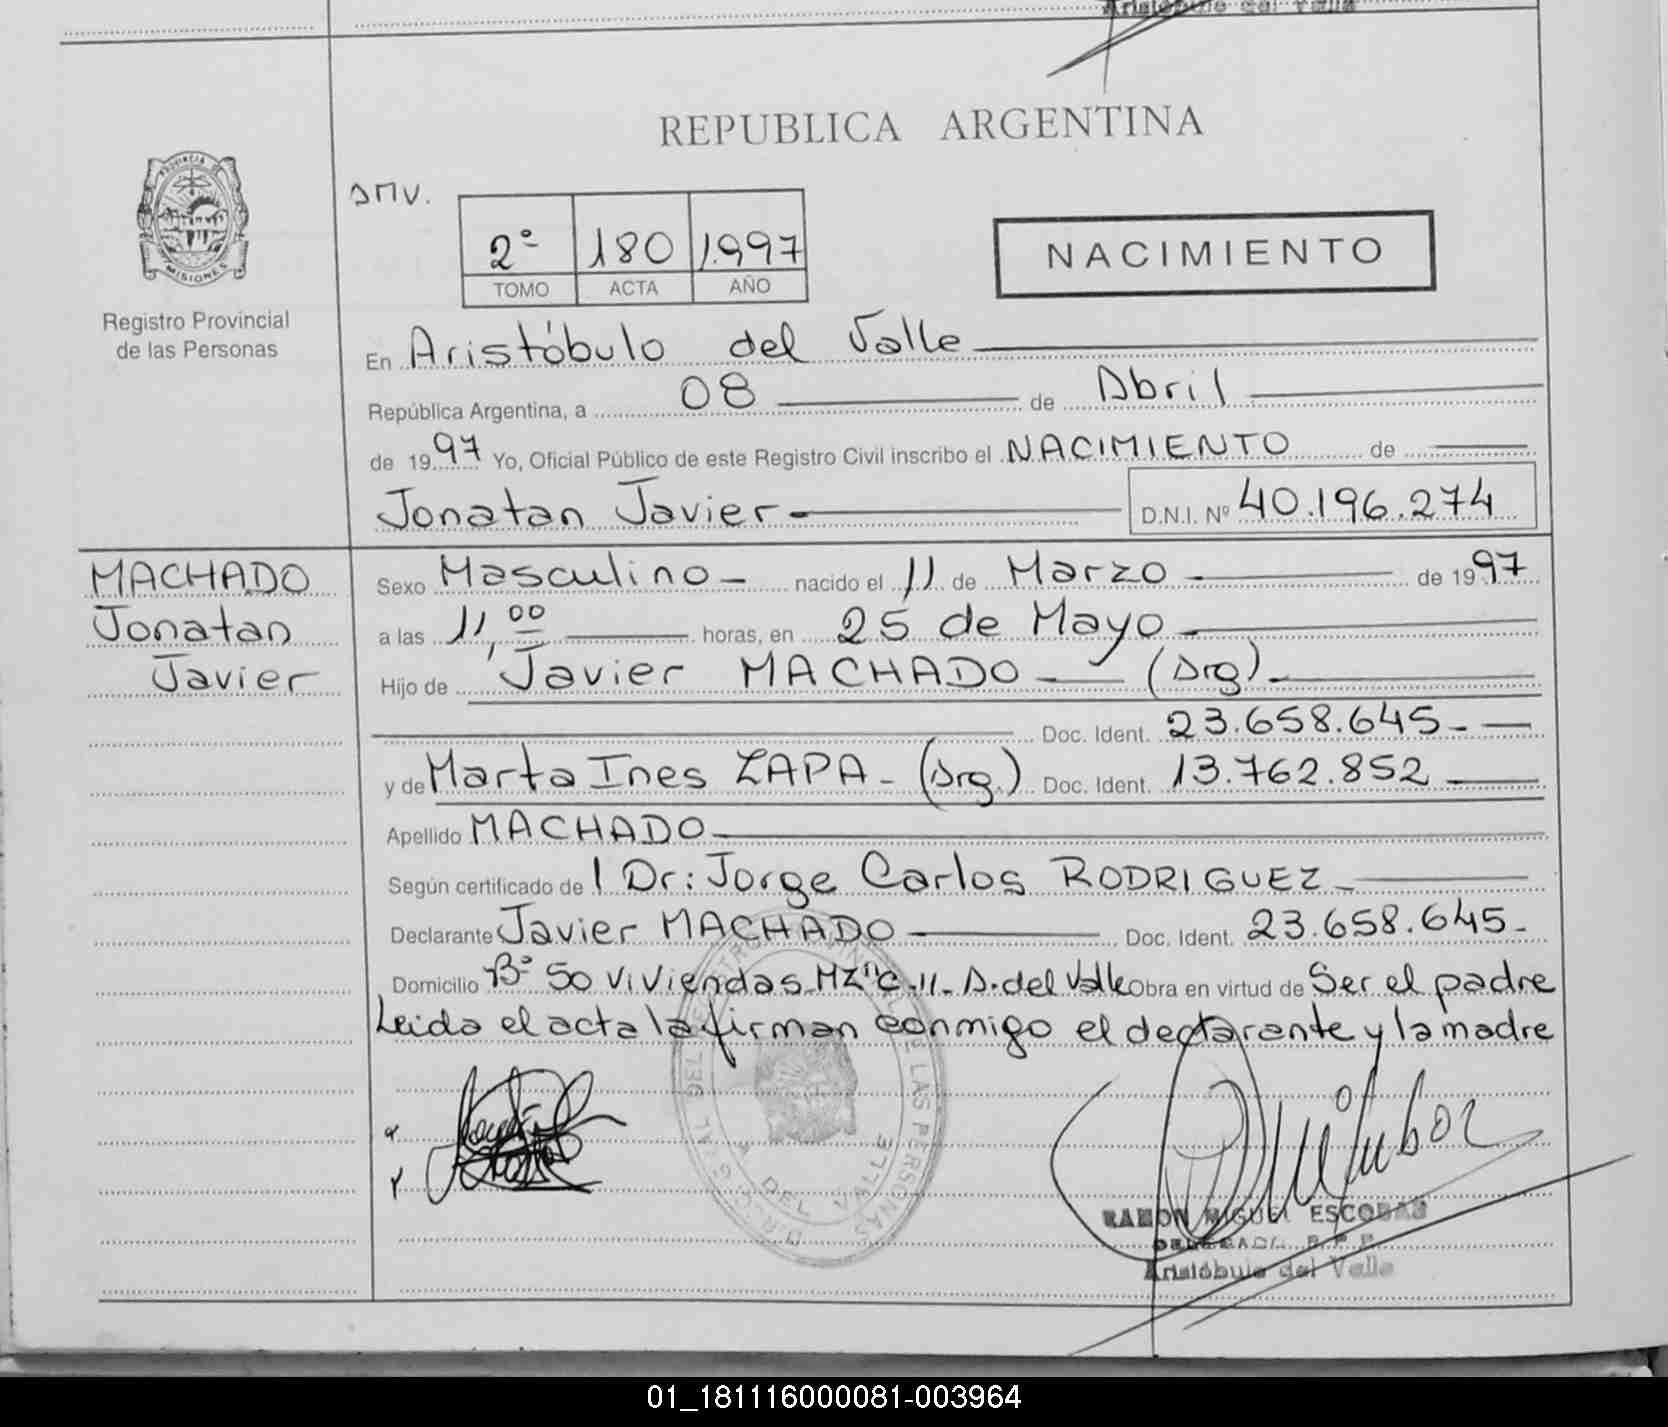 Aristóbulo del Valle
REPUBLICA ARGENTINA
PROVINCIA DE
MISIONES
Registro Provincial
de las Personas
2º 180 1.997
TOMO ACTA AÑO
NACIMIENTO
En Aristóbulo del Valle
República Argentina, a 08 de Abril
de 1997 Yo, Oficial Público de este Registro Civil inscribo el NACIMIENTO de
Jonatan Javier D.N.I. Nº 40.196.274
MACHADO
Jonatan
Javier
Sexo Masculino nacido el 11 de Marzo de 1997
a las 11,00 horas, en 25 de Mayo
Hijo de Javier MACHADO (Arg)
Doc. Ident. 23.658.645
y de Marta Ines ZAPA (Arg.) Doc. Ident. 13.762.852
Apellido MACHADO
Según certificado del Dr: Jorge Carlos RODRIGUEZ
Declarante Javier MACHADO Doc. Ident. 23.658.645
Domicilio Bº 50 Viviendas MZ"C"11 A. del Valle Obra en virtud de Ser el padre
Leida el acta la firman conmigo el declarante y la madre
DEL VALLE
RAMON MIGUEL ESCOBAR
Aristóbulo del Valle
01_181116000081-003964